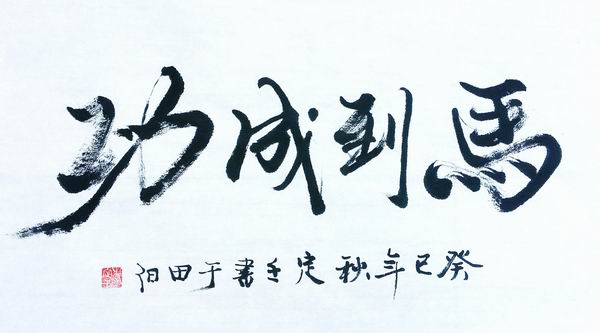 馬到成功
癸巳年秋定壬書于田